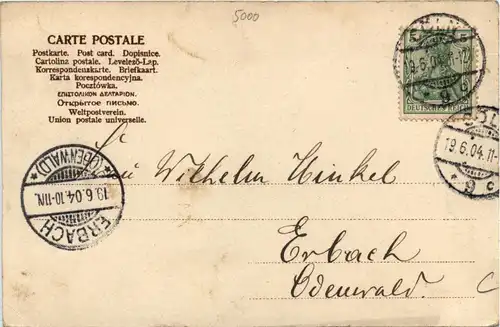 5000
CARTE POSTALE
Postkarte. Post card. Dopisnice.
Cartolina postale. Levelező-Lap.
Korrespondenzkarte. Briefkaart.
Karta korespondencyjna.
Pocztówka.
ΕΠΙΣΤΟΛΙΚΟΝ ΔΕΛΤΑΡΙΟΝ.
Открытое письмо.
Weltpostverein.
Union postale universelle.
DEUTSCHES REICH
19.6.04.11-12
19.6.04.11-
* 9 c
Wilhelm Hinkel
Erbach
Odenwald.
ERBACH
19.6.04.10-11N.
*(ODENWALD)*